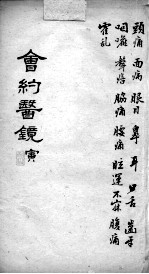 頭痛 面病 眼目 鼻 耳 口舌 齒牙
咽喉 聲瘖 脇痛 腰痛 眩運 不寐 腹痛
霍亂
會約醫鏡 寅